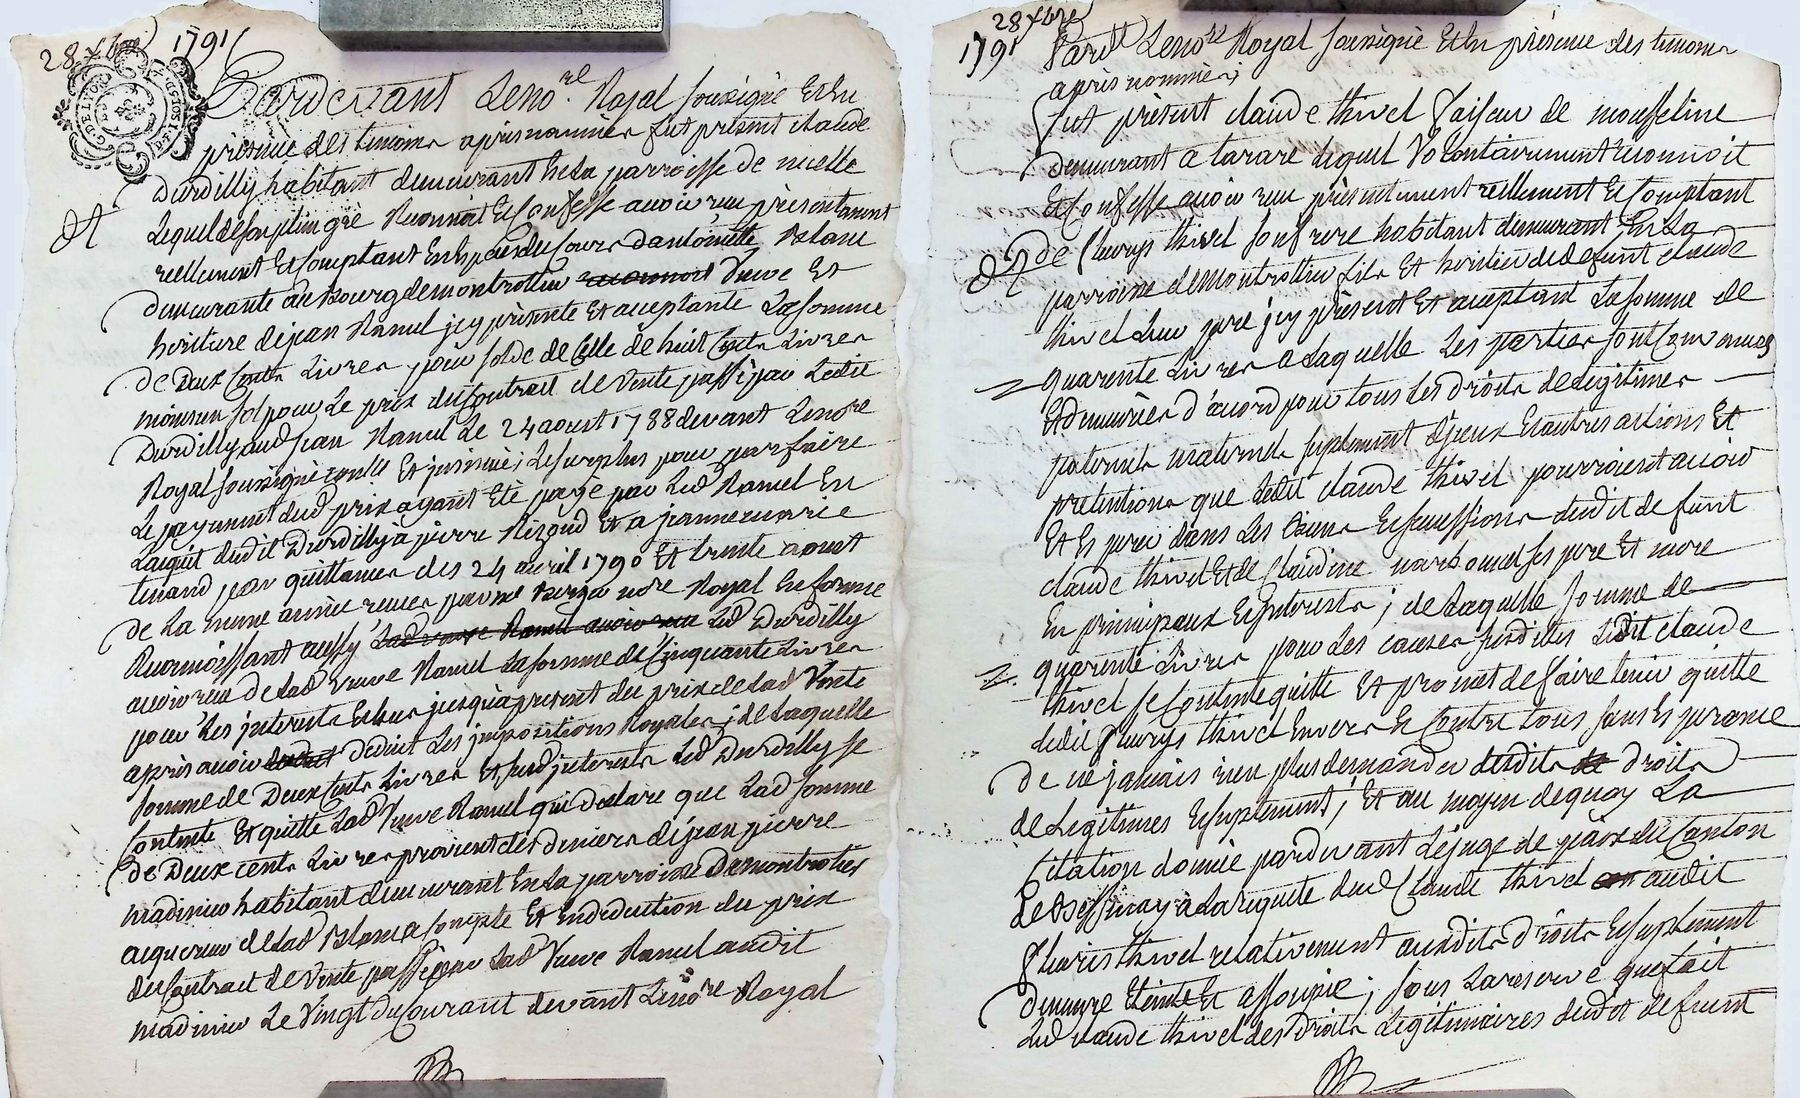 28 xbre 1791
Pardevant Le no.re Royal soussigné Et En
présence des temoins après nommés fut présent claude
Durdilly habitant demeurant En La parroisse de
Lequel de son plein gré Reconnoit Et Confesse avoir reçu présentement
réellement Et Comptant En Espèces du Cours d'antoinette
demeurante au Bourg de montrottier Veuve Et
héritière de jean Ramel jcy présente Et acceptante La somme
de Deux Cents Livres pour solde de Celle de huit Cents Livres
pour Le prix du Contrat de Vente passé par Ledit
Durdilly aud jean Ramel Le 24 aoust 1788 devant Le nore
Royal soussigné Et ; Le surplus pour parfaire
Le payement dud prix ayant Eté payé par Led Ramel En
L'aquit dudit Durdilly à pierre Et a jeanne marie
quittances des 24 avril 1790 Et trente aoust
de La meme année reçues par nore Royal En forme
Reconnoissant aussy Led Durdilly
avoir reçu de Lad Veuve Ramel La somme de Cinquante Livres
pour Les jnterets Echus jusqu'à present du prix de Lad Vente
après avoir déduit Les jmpositions Royales ; de Laquelle
somme de Deux Cents Livres Et susd jnterets Led Durdilly se
Contente Et quitte Lad Veuve Ramel qui déclare que Lad somme
de Deux cents Livres provient des deniers de jean pierre
madinier habitant demeurant En La parroisse De montrottier
aquereur de Lad a Compte Et En déduction du prix
du Contract de Vente passé par Lad Veuve Ramel audit
madinier Le Vingt du Courant devant Le nore Royal
28 xbre
1791
Pard.t Le no.re Royal soussigné Et En présence des temoins
après nommés ;
fut présent claude thivel faiseur de mousseline
demeurant a tarare Lequel Volontairement reconnoit
Et Confesse avoir reçu présentement réellement Et Comptant
de fleurys thivel son frere habitant demeurant En La
parroisse de montrottier fils Et héritier de defunt claude
thivel Leur pere jcy présent Et acceptant La somme de
quarente Livres a Laquelle Les parties sont Convenues
Et demeurées d'acord pour tous Les droits de Legitimes
paternels maternels suplement d'jceux Et autres actions Et
prétentions que Ledit claude thivel pourroient avoir
Et Espérer dans Les Biens Et successions dudit defunt
claude thivel Et de Claudine ses pere Et mere
En principaux Et Interests ; de Laquelle somme de
quarente Livres pour Les causes susdittes Ledit claude
thivel se Contente quitte Et promet de faire tenir quitte
Ledit fleurys thivel Envers Et Contre tous sans Esperance
de ne jamais rien plus demander desdits droits
de Legitimes Et suplement ; Et au moyen de quoy La
Citation donnée pardevant Le juge de paix du Canton
de à La requete dud Claude thivel audit
fleuris thivel relativement auxdits droits Et suplement
demeure Eteinte Et assoupie ; sous La reserve que fait
Led claude thivel des droits Legitimaires dudit defunt